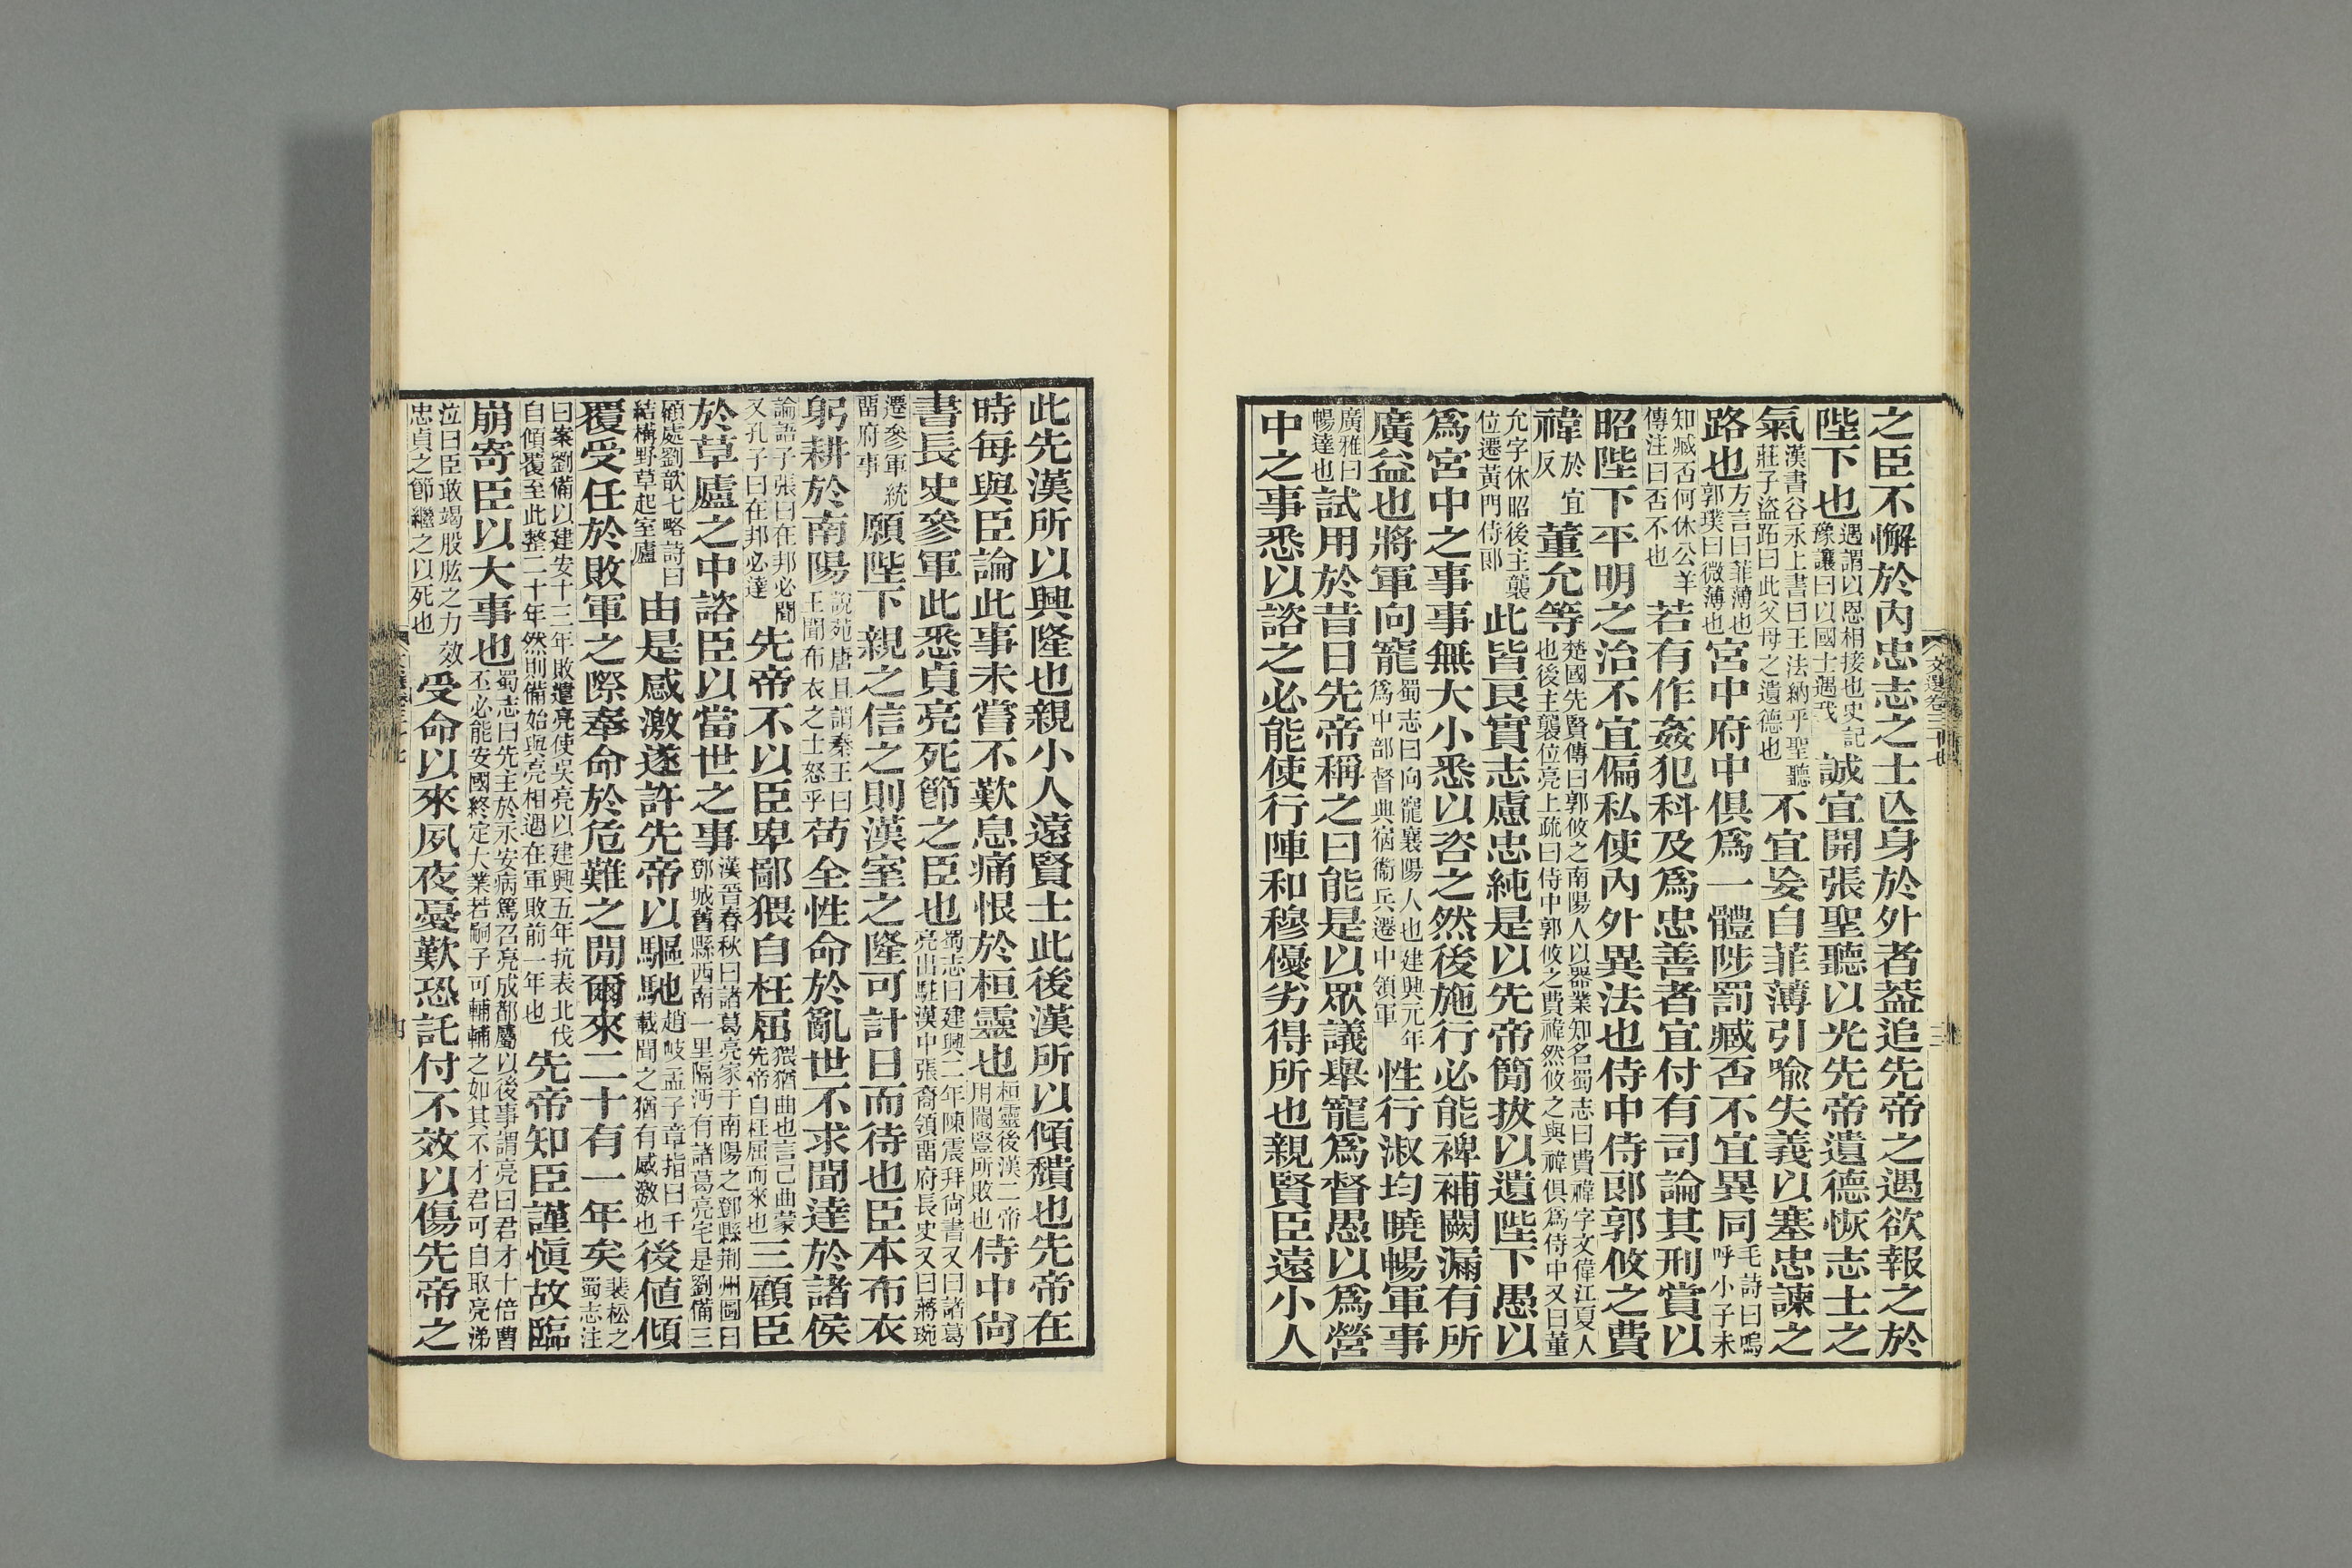 之臣不懈於內忠志之士亾身於外者葢追先帝之遇欲報之於
陛下也遇謂以恩相接也史記豫讓曰以國士遇我誠宜開張聖聽以光先帝遺德恢志士之
氣漢書谷永上書曰王法納乎聖聽莊子盜跖曰此父母之遺德也不宜妄自菲薄引喻失義以塞忠諫之
路也方言曰菲薄也郭璞曰微薄也宮中府中俱爲一體陟罰臧否不宜異同毛詩曰嗚呼小子未
知臧否何休公羊傳注曰否不也若有作姦犯科及爲忠善者宜付有司論其刑賞以
昭陛下平明之治不宜偏私使內外異法也侍中侍郎郭攸之費
禕於宜反董允等楚國先賢傳曰郭攸之南陽人以器業知名蜀志曰費禕字文偉江夏人也後主襲位亮上疏曰侍中郭攸之費禕然攸之與禕俱爲侍中又曰董
允字休昭後主襲位遷黃門侍郎此皆良實志慮忠純是以先帝簡拔以遺陛下愚以
爲宮中之事事無大小悉以咨之然後施行必能裨補闕漏有所
廣益也將軍向寵蜀志曰向寵襄陽人也建興元年爲中部督典宿衞兵遷中領軍性行淑均曉暢軍事
廣雅曰暢達也試用於昔日先帝稱之曰能是以眾議舉寵爲督愚以爲營
中之事悉以諮之必能使行陣和穆優劣得所也親賢臣遠小人
文選卷三十七
三
此先漢所以興隆也親小人遠賢士此後漢所以傾穨也先帝在
時每與臣論此事未嘗不歎息痛恨於桓靈也桓靈後漢二帝用閹豎所敗也侍中尙
書長史參軍此悉貞亮死節之臣也蜀志曰建興二年陳震拜尙書又曰諸葛亮出駐漢中張裔領畱府長史又曰蔣琬
遷參軍統畱府事願陛下親之信之則漢室之隆可計日而待也臣本布衣
躬耕於南陽說苑唐且謂秦王曰王聞布衣之士怒乎苟全性命於亂世不求聞達於諸侯
論語子張曰在邦必聞又孔子曰在邦必達先帝不以臣卑鄙猥自枉屈猥猶曲也言己曲蒙先帝自枉屈而來也三顧臣
於草廬之中諮臣以當世之事漢晉春秋曰諸葛亮家于南陽之鄧縣荆州圖曰鄧城舊縣西南一里隔沔有諸葛亮宅是劉備三
顧處劉歆七略詩曰結構野草起室廬由是感激遂許先帝以驅馳趙岐孟子章指曰千載聞之猶有感激也後値傾
覆受任於敗軍之際奉命於危難之閒爾來二十有一年矣裴松之蜀志注
曰案劉備以建安十三年敗遣亮使吳亮以建興五年抗表北伐自傾覆至此整二十年然則備始與亮相遇在軍敗前一年也先帝知臣謹愼故臨
崩寄臣以大事也蜀志曰先主於永安病篤召亮成都屬以後事謂亮曰君才十倍曹丕必能安國終定大業若嗣子可輔輔之如其不才君可自取亮涕
泣曰臣敢竭股肱之力效忠貞之節繼之以死也受命以來夙夜憂歎恐託付不效以傷先帝之
四